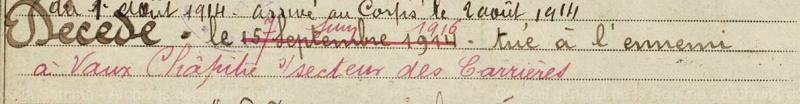 du 1er août 1914 - arrivé au Corps le 2 août 1914
Décédé - le 15 7 septembre juin 1914 1916 - tué à l'ennemi
à Vaux Chapitre s/secteur des Carrières